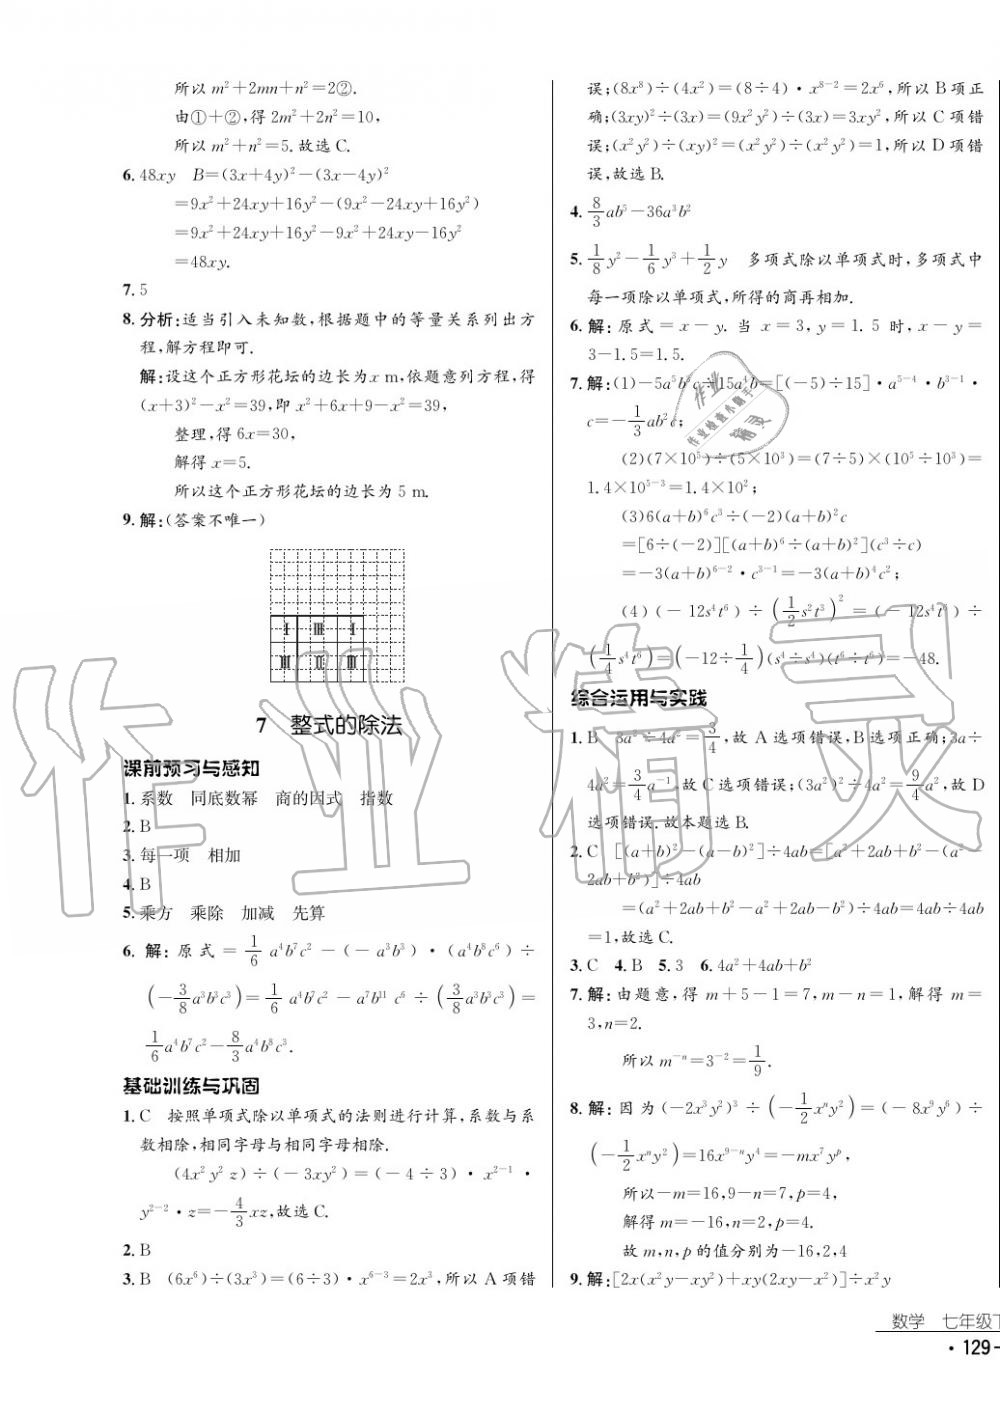 所以 m²+2mn+n²=2②.
由①+②,得 2m²+2n²=10,
所以 m²+n²=5.故选 C.
6. 48xy B=(3x+4y)²-(3x-4y)²
=9x²+24xy+16y²-(9x²-24xy+16y²)
=9x²+24xy+16y²-9x²+24xy-16y²
=48xy.
7. 5
8. 分析:适当引入未知数,根据题中的等量关系列出方
程,解方程即可.
解:设这个正方形花坛的边长为x m,依题意列方程,得
(x+3)²-x²=39,即 x²+6x+9-x²=39,
整理,得 6x=30,
解得 x=5.
所以这个正方形花坛的边长为 5 m.
9. 解:(答案不唯一)
Ⅰ Ⅲ Ⅰ
Ⅲ Ⅱ Ⅲ
7 整式的除法
课前预习与感知
1. 系数 同底数幂 商的因式 指数
2. B
3. 每一项 相加
4. B
5. 乘方 乘除 加减 先算
6. 解:原式=1/6 a⁴b⁷c²-(-a³b³)·(a⁴b⁸c⁶)÷
(-3/8 a³b³c³)=1/6 a⁴b⁷c²-a⁷b¹¹c⁶÷(3/8 a³b³c³)=
1/6 a⁴b⁷c²-8/3 a⁴b⁸c³.
基础训练与巩固
1. C 按照单项式除以单项式的法则进行计算,系数与系
数相除,相同字母与相同字母相除.
(4x²y²z)÷(-3xy²)=(-4÷3)·x²⁻¹·
y²⁻²·z=-4/3 xz,故选 C.
2. B
3. B (6x⁶)÷(3x³)=(6÷3)·x⁶⁻³=2x³,所以 A 项错
误;(8x⁸)÷(4x²)=(8÷4)·x⁸⁻²=2x⁶,所以 B 项正
确;(3xy)²÷(3x)=(9x²y²)÷(3x)=3xy²,所以 C 项错
误;(x²y²)÷(xy)²=(x²y²)÷(x²y²)=1,所以 D 项错
误,故选 B.
4. 8/3 ab⁵-36a³b²
5. 1/8 y²-1/6 y³+1/2 y 多项式除以单项式时,多项式中
每一项除以单项式,所得的商再相加.
6. 解:原式=x-y.当 x=3,y=1.5 时,x-y=
3-1.5=1.5.
7. 解:(1)-5a⁵b³c÷15a⁴b=[(-5)÷15]·a⁵⁻⁴·b³⁻¹·
c=-1/3 ab²c;
(2)(7×10⁵)÷(5×10³)=(7÷5)×(10⁵÷10³)=
1.4×10⁵⁻³=1.4×10²;
(3)6(a+b)⁶c³÷(-2)(a+b)²c
=[6÷(-2)][(a+b)⁶÷(a+b)²](c³÷c)
=-3(a+b)⁶⁻²·c³⁻¹=-3(a+b)⁴c²;
(4)(-12s⁴t⁶)÷(1/2 s²t³)²=(-12s⁴t⁶)÷
(1/4 s⁴t⁶)=(-12÷1/4)(s⁴÷s⁴)(t⁶÷t⁶)=-48.
综合运用与实践
1. B 3a²÷4a²=3/4,故 A 选项错误,B 选项正确;3a÷
4a²=3/4 a⁻¹,故 C 选项错误;(3a²)²÷4a²=9/4 a²,故 D
选项错误.故本题选 B.
2. C [(a+b)²-(a-b)²]÷4ab=[a²+2ab+b²-(a²-
2ab+b²)]÷4ab
=(a²+2ab+b²-a²+2ab-b²)÷4ab=4ab÷4ab
=1,故选 C.
3. C 4. B 5. 3 6. 4a²+4ab+b²
7. 解:由题意,得 m+5-1=7,m-n=1,解得 m=
3,n=2.
所以 m⁻ⁿ=3⁻²=1/9.
8. 解:因为(-2x³y²)³÷(-1/2 xⁿy²)=(-8x⁹y⁶)÷
(-1/2 xⁿy²)=16x⁹⁻ⁿy⁴=-mx⁷yᵖ,
所以-m=16,9-n=7,p=4,
解得 m=-16,n=2,p=4.
故 m,n,p 的值分别为-16,2,4
9. 解:[2x(x²y-xy²)+xy(2xy-x²)]÷x²y
数学 七年级下
·129-
作业精灵
作业
作业检查小助手
精灵